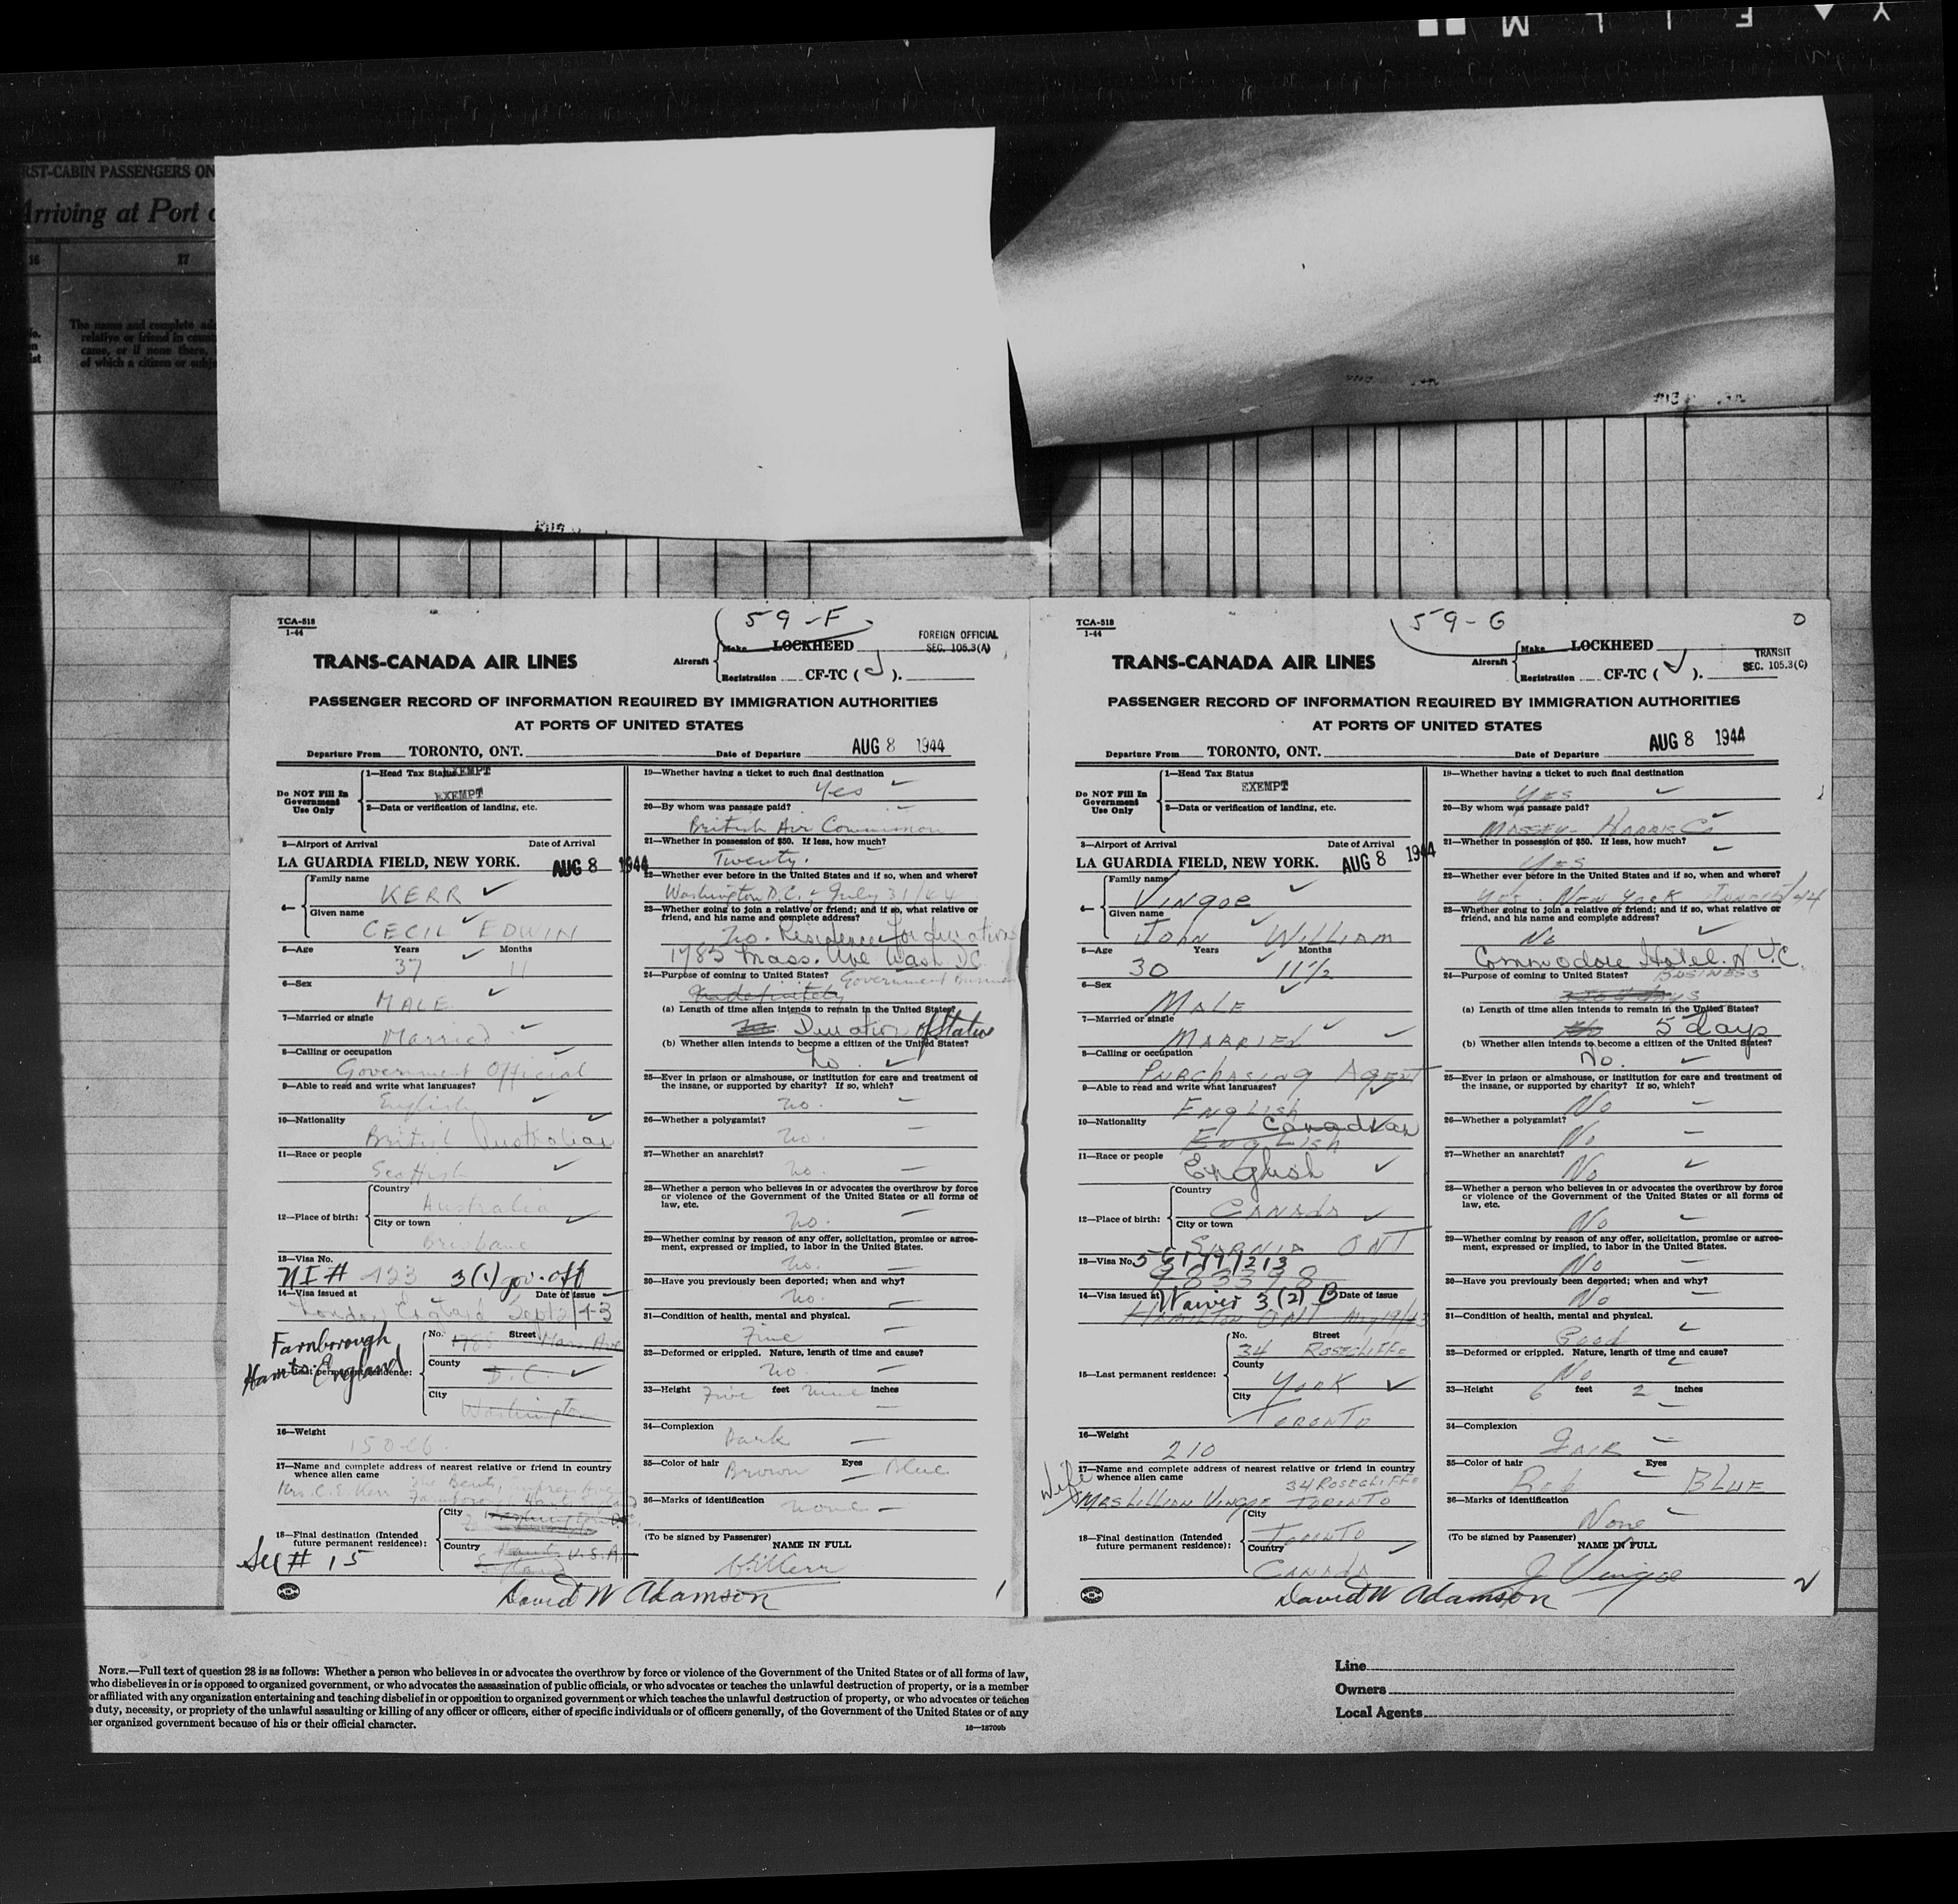 Y ▲ F I L M
RST-CABIN PASSENGERS ON
Arriving at Port
16 17
The name and complete
relative or friend in
came, or if none there,
of which a citizen or
TCA-518
1-44
59-F
FOREIGN OFFICIAL
SEC. 105.3(A)
TRANS-CANADA AIR LINES
Aircraft
Make LOCKHEED
Registration CF-TC ( J ).
PASSENGER RECORD OF INFORMATION REQUIRED BY IMMIGRATION AUTHORITIES
AT PORTS OF UNITED STATES
Departure From TORONTO, ONT.
Date of Departure AUG 8 1944
Do NOT Fill In
Government
Use Only
1—Head Tax Status EXEMPT
EXEMPT
2—Data or verification of landing, etc.
3—Airport of Arrival Date of Arrival
LA GUARDIA FIELD, NEW YORK. AUG 8 1944
4—
Family name
KERR
Given name
CECIL EDWIN
5—Age Years Months
37 11
6—Sex
MALE
7—Married or single
Married
8—Calling or occupation
Government Official
9—Able to read and write what languages?
English
10—Nationality
British Australian
11—Race or people
Scottish
12—Place of birth:
Country
Australia
City or town
Brisbane
13—Visa No.
NI # 123 3(1) gov. off
14—Visa issued at Date of issue
London, England Sept 2/43
Farnborough
Hants England
15—Last permanent residence:
No. Street
1785 Mass Ave
County
D.C.
City
Washington
16—Weight
150 lb.
17—Name and complete address of nearest relative or friend in country
whence alien came
Mrs. C.E. Kerr
18—Final destination (Intended
future permanent residence):
City
Country
U.S.A.
Sec # 15
19—Whether having a ticket to such final destination
Yes
20—By whom was passage paid?
British Air Commission
21—Whether in possession of $50. If less, how much?
Twenty.
22—Whether ever before in the United States and if so, when and where?
Washington D.C., July 31/44
23—Whether going to join a relative or friend; and if so, what relative or
friend, and his name and complete address?
No. Residence for duration
1785 Mass. Ave Wash. D.C.
24—Purpose of coming to United States? Government Business
Indefinitely
(a) Length of time alien intends to remain in the United States?
Duration of Status
(b) Whether alien intends to become a citizen of the United States?
No
25—Ever in prison or almshouse, or institution for care and treatment of
the insane, or supported by charity? If so, which?
No.
26—Whether a polygamist?
No.
27—Whether an anarchist?
No.
28—Whether a person who believes in or advocates the overthrow by force
or violence of the Government of the United States or all forms of
law, etc.
No.
29—Whether coming by reason of any offer, solicitation, promise or agree-
ment, expressed or implied, to labor in the United States.
No.
30—Have you previously been deported; when and why?
No.
31—Condition of health, mental and physical.
Fine
32—Deformed or crippled. Nature, length of time and cause?
No.
33—Height Five feet nine inches
34—Complexion
Dark
35—Color of hair Brown Eyes Blue
36—Marks of identification
None
(To be signed by Passenger)
NAME IN FULL
C.E. Kerr
David W Adamson
1
TCA-518
1-44
59-G
TRANSIT
SEC. 105.3(C)
TRANS-CANADA AIR LINES
Aircraft
Make LOCKHEED
Registration CF-TC ( J ).
PASSENGER RECORD OF INFORMATION REQUIRED BY IMMIGRATION AUTHORITIES
AT PORTS OF UNITED STATES
Departure From TORONTO, ONT.
Date of Departure AUG 8 1944
Do NOT Fill In
Government
Use Only
1—Head Tax Status
EXEMPT
2—Data or verification of landing, etc.
3—Airport of Arrival Date of Arrival
LA GUARDIA FIELD, NEW YORK. AUG 8 1944
4—
Family name
Vingoe
Given name
John William
5—Age Years Months
30 11½
6—Sex
MALE
7—Married or single
MARRIED
8—Calling or occupation
PURCHASING AGENT
9—Able to read and write what languages?
English
10—Nationality Canadian
English
11—Race or people
English
12—Place of birth:
Country
CANADA
City or town
SARNIA ONT
13—Visa No.
14—Visa issued at Waiver 3(2) B Date of issue
HAMILTON ONT
15—Last permanent residence:
No. Street
34 ROSECLIFFE
County
YORK
City
TORONTO
16—Weight
210
17—Name and complete address of nearest relative or friend in country
whence alien came 34 ROSECLIFFE
Wife
MRS LILLIAN VINGOE TORONTO
18—Final destination (Intended
future permanent residence):
City
TORONTO
Country
CANADA
19—Whether having a ticket to such final destination
YES
20—By whom was passage paid?
MASSEY-HARRIS Co
21—Whether in possession of $50. If less, how much?
YES
22—Whether ever before in the United States and if so, when and where?
Yes. New York
23—Whether going to join a relative or friend; and if so, what relative or
friend, and his name and complete address?
No
Commodore Hotel. N.Y.C.
24—Purpose of coming to United States? BUSINESS
(a) Length of time alien intends to remain in the United States?
5 days
(b) Whether alien intends to become a citizen of the United States?
No.
25—Ever in prison or almshouse, or institution for care and treatment of
the insane, or supported by charity? If so, which?
No
26—Whether a polygamist?
No
27—Whether an anarchist?
No
28—Whether a person who believes in or advocates the overthrow by force
or violence of the Government of the United States or all forms of
law, etc.
No
29—Whether coming by reason of any offer, solicitation, promise or agree-
ment, expressed or implied, to labor in the United States.
No
30—Have you previously been deported; when and why?
No
31—Condition of health, mental and physical.
Good
32—Deformed or crippled. Nature, length of time and cause?
No
33—Height 6 feet 2 inches
34—Complexion
FAIR
35—Color of hair Red Eyes BLUE
36—Marks of identification
None
(To be signed by Passenger)
NAME IN FULL
J Vingoe
David W Adamson
2
NOTE.—Full text of question 28 is as follows: Whether a person who believes in or advocates the overthrow by force or violence of the Government of the United States or of all forms of law,
who disbelieves in or is opposed to organized government, or who advocates the assassination of public officials, or who advocates or teaches the unlawful destruction of property, or is a member
or affiliated with any organization entertaining and teaching disbelief in or opposition to organized government or which teaches the unlawful destruction of property, or who advocates or teaches
duty, necessity, or propriety of the unlawful assaulting or killing of any officer or officers, either of specific individuals or of officers generally, of the Government of the United States or of any
er organized government because of his or their official character.
16—18709b
Line
Owners
Local Agents